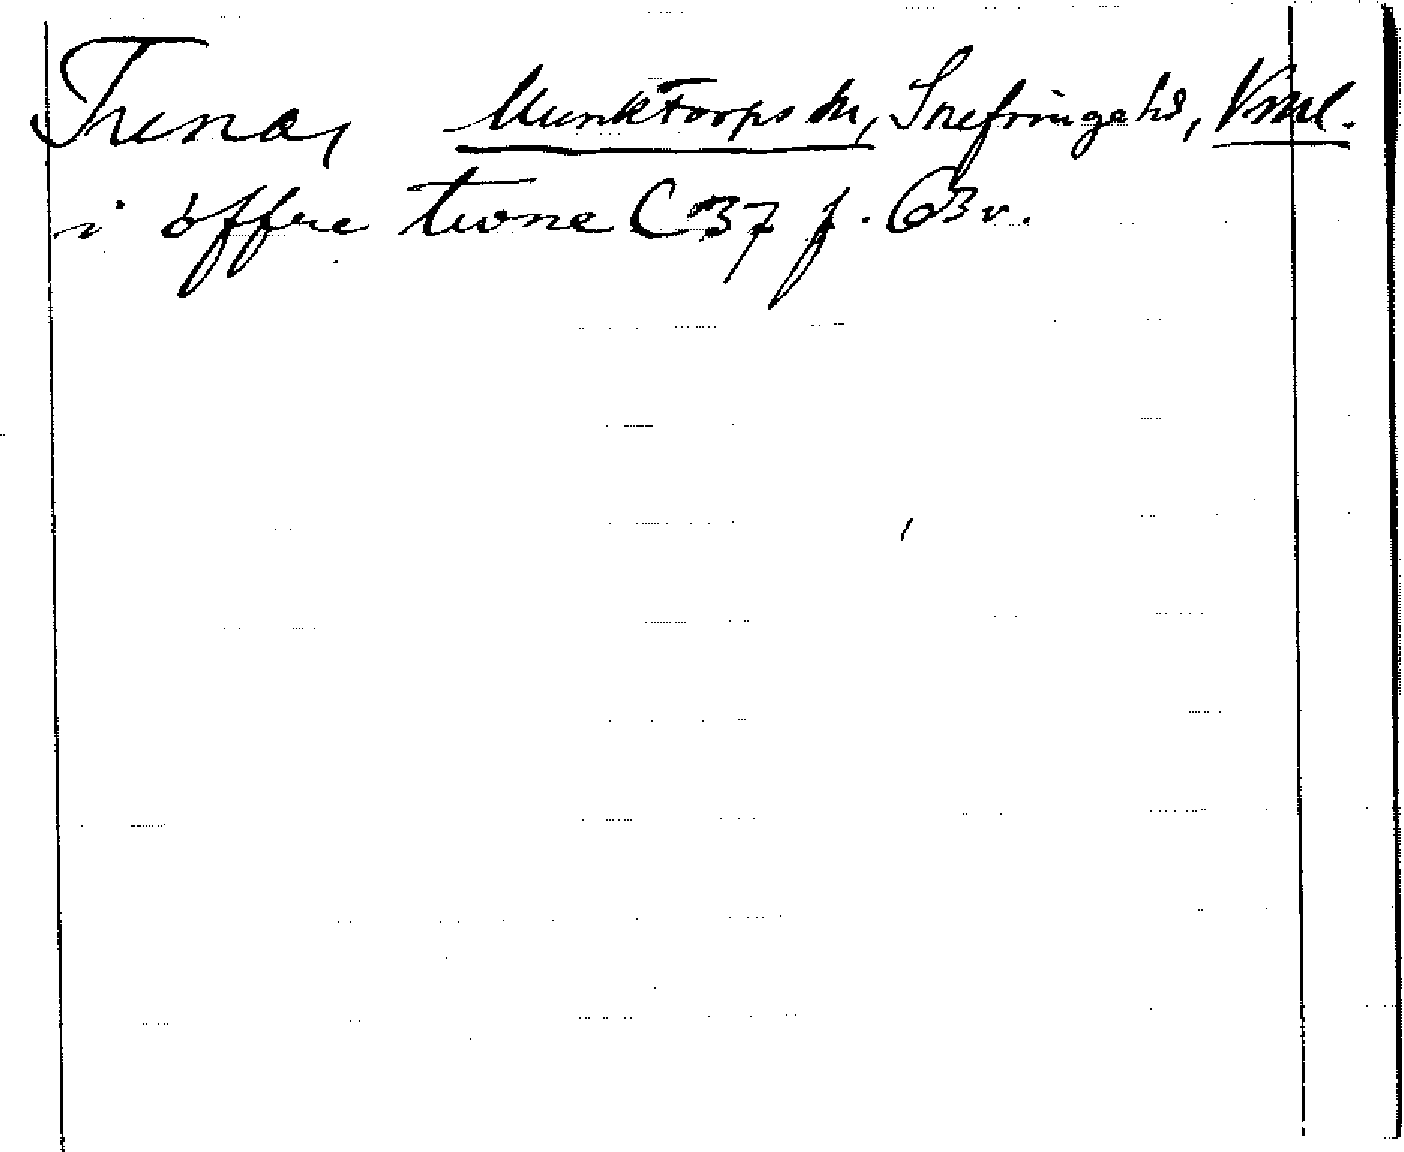 Truna, Munktorps sn, Snefringe hd, Vml.
i öffre trone C 37 f. 63 v.